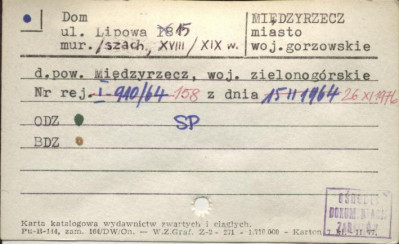 Dom
ul. Lipowa 15
mur./szach., XVIII / XIX w.
MIĘDZYRZECZ
miasto
woj. gorzowskie
d.pow. Międzyrzecz, woj. zielonogórskie
Nr rej. I-910/64 158 z dnia 15 II 1964 26 XI 1976
ODZ
BDZ
SP
Karta katalogowa wydawnictw zwartych i ciągłych.
Pu-H-144, zam. W.Z.Graf. Z-2
OŚRODEK